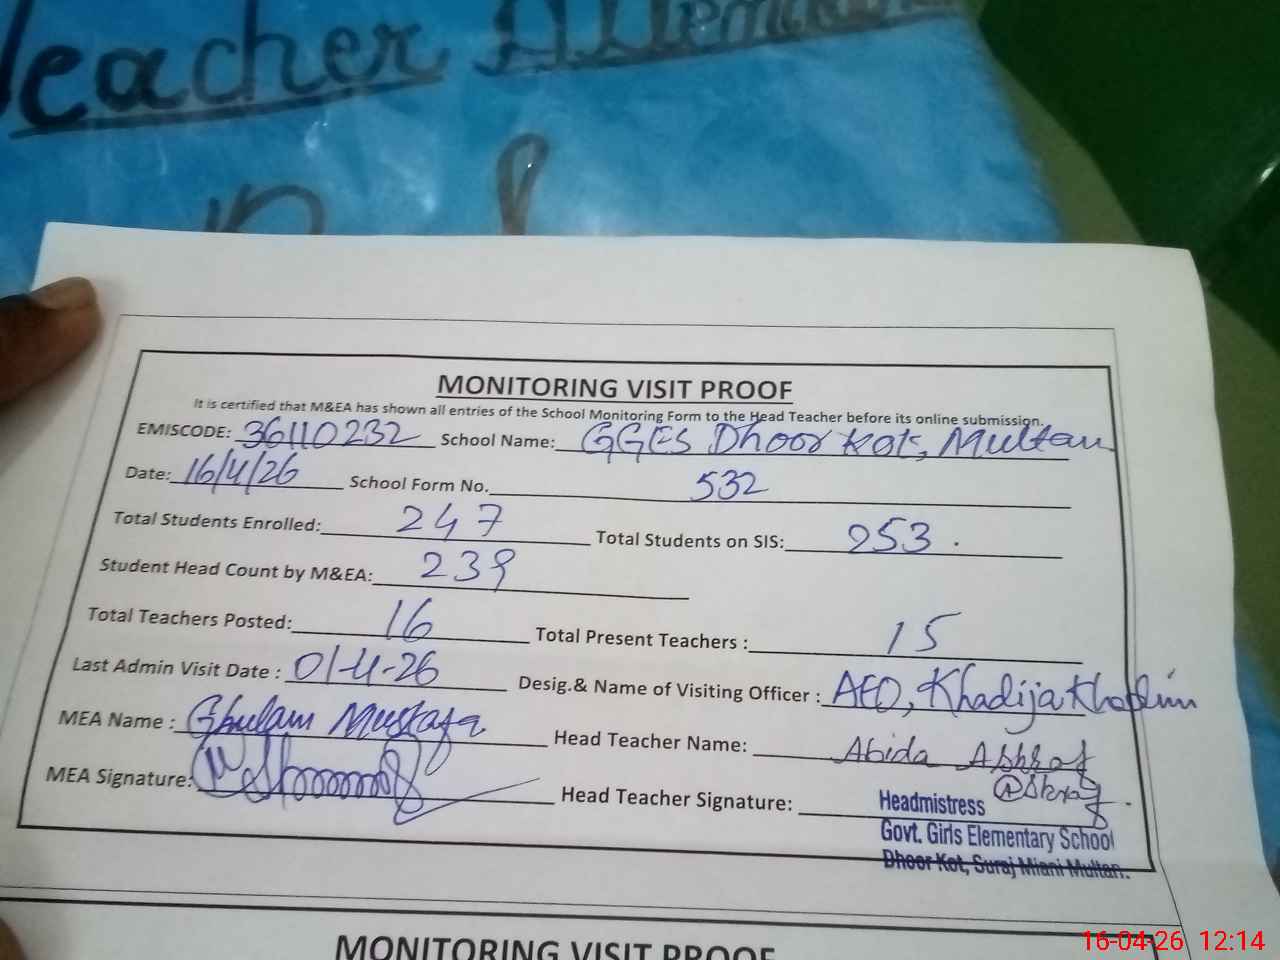 Teacher Attendance
MONITORING VISIT PROOF
It is certified that M&EA has shown all entries of the School Monitoring Form to the Head Teacher before its online submission.
EMISCODE: 36110232 School Name: GGES Dhoor Kot, Multan
Date: 16/4/26 School Form No. 532
Total Students Enrolled: 247 Total Students on SIS: 253.
Student Head Count by M&EA: 239
Total Teachers Posted: 16 Total Present Teachers : 15
Last Admin Visit Date : 01-4-26 Desig.& Name of Visiting Officer : AEO, Khadija
MEA Name : Ghulam Mustafa Head Teacher Name: Abida Ashraf
MEA Signature: Head Teacher Signature: Ashraf
Headmistress
Govt. Girls Elementary School
Dhoor Kot, Suraj Miani Multan.
MONITORING VISIT PROOF
16-04-26 12:14